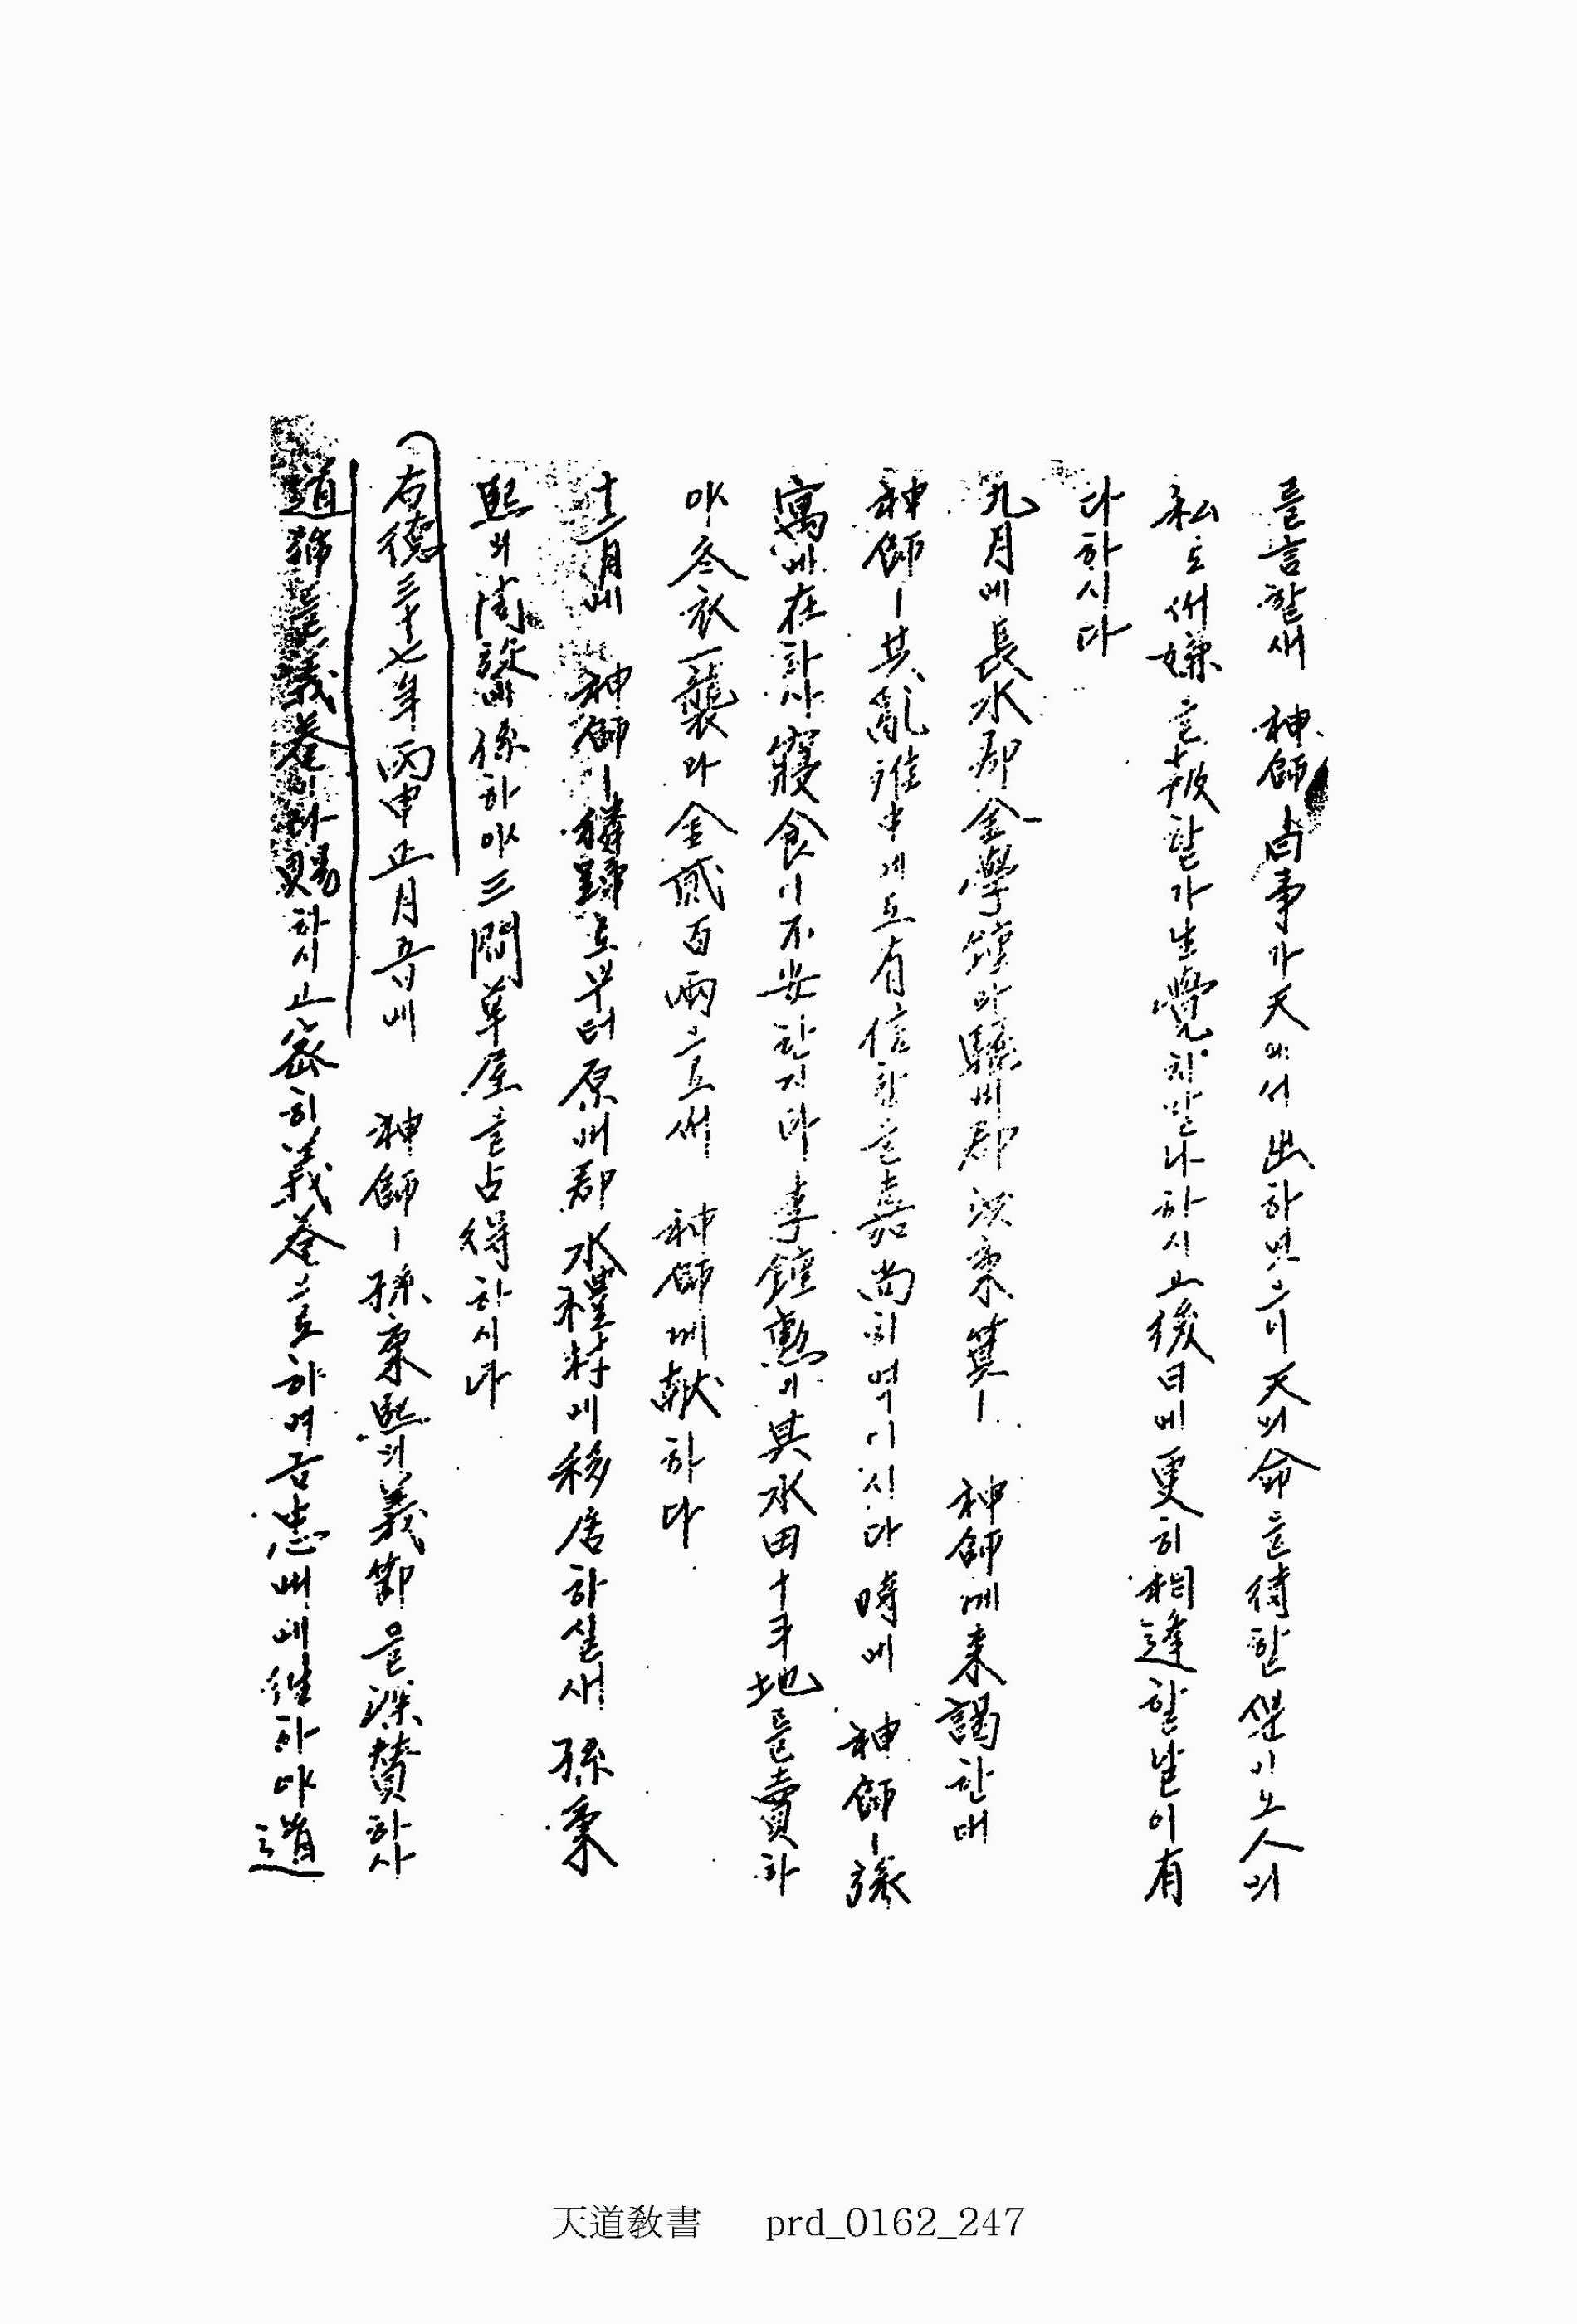 를言할새 神師曰事가天에서出하엿으니天의命을待할뿐이노人의
私로써嫌을報할가生覺치말나하시고後日에更히相逢할날이有
다하시다
九月에長水郡金學鍾과驪州郡洪秉箕ㅣ 神師께来謁한대
神師ㅣ其亂離中에도有信함을嘉尙히역이시다時에 神師ㅣ
寓에在하사寢食이不安한지라李鍾勳이其水田十斗地를賣하
야冬衣一襲과金貳百兩으로써 神師께献하다
十二月에 神師ㅣ麟蹄로부터原州郡水禮村에移居하실새孫秉
熙의周設에係하야三間草屋을占得하시다
布德三十七年丙申正月 에 神師ㅣ孫秉熙의義節을深賛하사
道號를義菴이라賜하시고密히義菴으로하여금忠州에往하야道
天道敎書 prd_0162_247